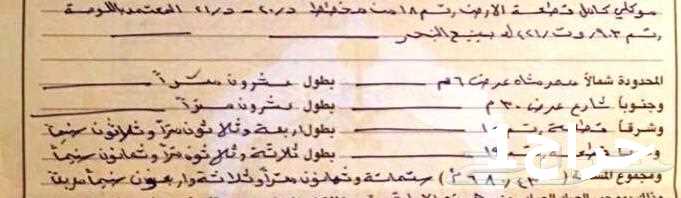 موكلي كامل قطعة الارض رقم ١٨ من مخطط د/٢٠ - د/٢١ المعتمد باللوحة
رقم ٩٠٣/ت و/٢٢١ له بينبع البحر
المحدودة شمالاً ممر مشاه عرض ٦م بطول عشرون متراً
وجنوباً شارع عرض ٣٠ م بطول عشرون متراً
وشرقاً قطعة رقم بطول اربعة وثلاثون متراً وثلاثون سنيماً
قطعة رقم ١٩ بطول ثلاثة وثلاثون متراً وثمانون سنيماً
ومجموع (٦٨٠/٤٣ م٢) ستمائة وثمانون متراً وثلاثة واربعون سنيماً مربعاً
حراج